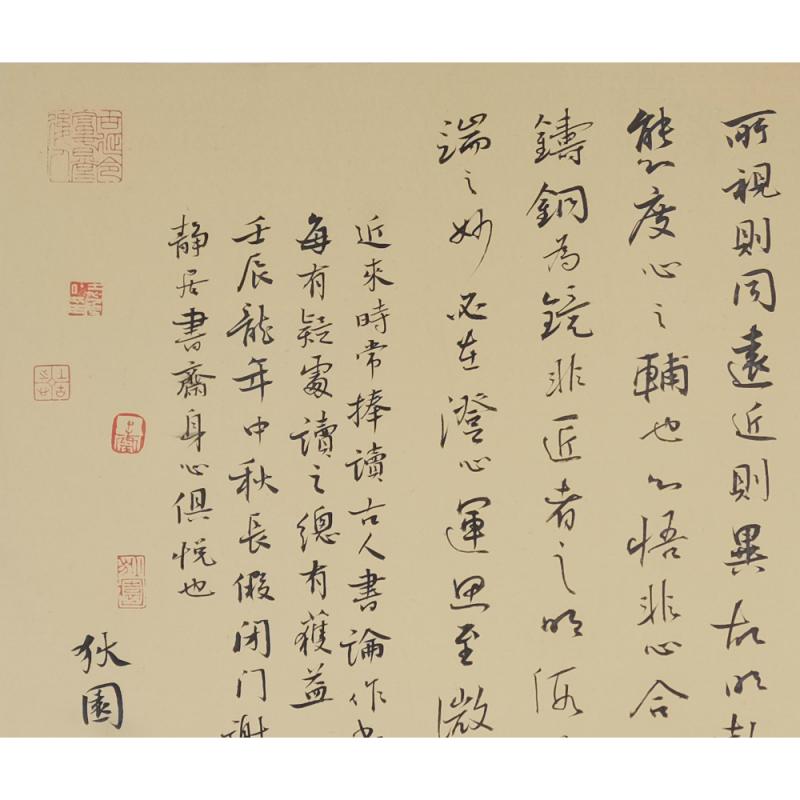 所視則同遠近則異故明執
能不度心之輔也不悟非心合
鑄銅為鏡非匠者之明假
端之妙必在澄心運思至微
近來時常捧讀古人書論作書
每有疑處讀之總有獲益
壬辰龍年中秋長假闭门謝
静居書齋身心俱悦也
狄園